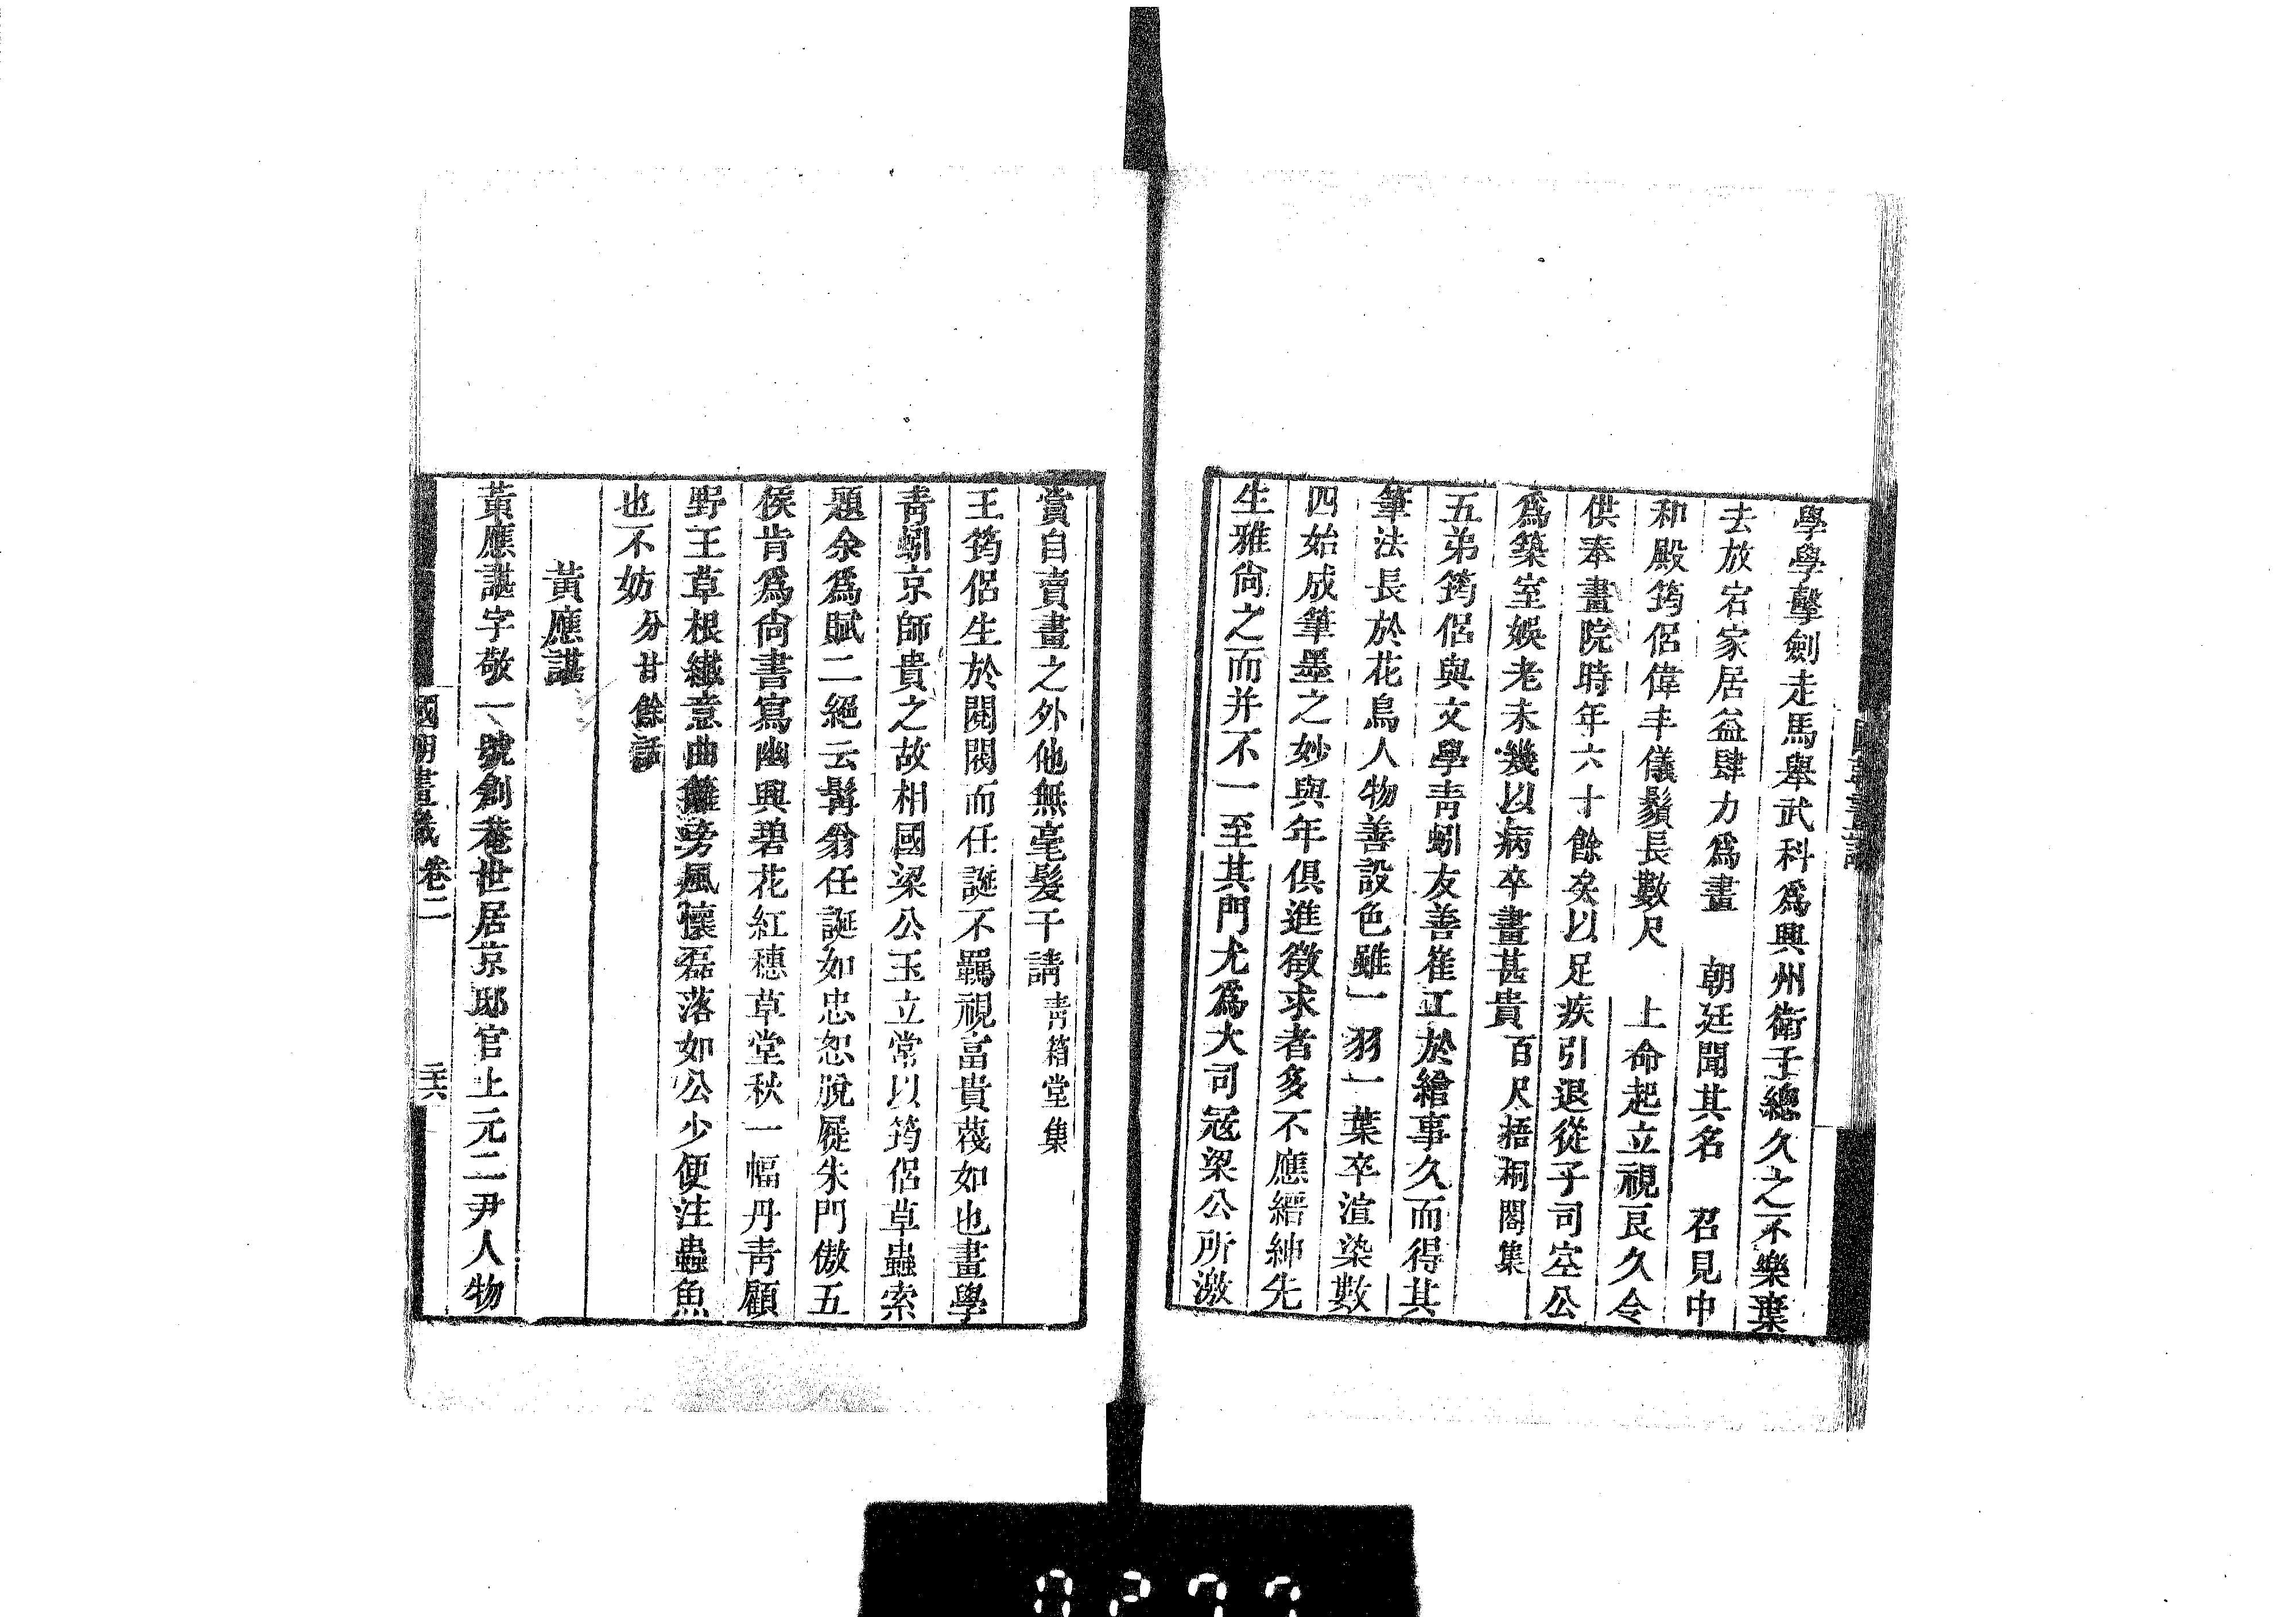 學學擊劍走馬舉武科爲興州衛子總久之不樂棄
去放宕家居益肆力爲畫　朝廷聞其名　召見中
和殿筠侶偉丰儀鬚長數尺　上命起立視良久令
供奉畫院時年六十餘矣以足疾引退從子司空公
爲築室娛老未幾以病卒畫甚貴百尺梧桐閣集
五弟筠侶與文學靑蚓友善崔工於繪事久而得其
筆法長於花鳥人物善設色雖一羽一葉卒渲染數
四始成筆墨之妙與年俱進徵求者多不應縉紳先
生雅尙之而幷不一至其門尤爲大司寇梁公所激
賞自賣畫之外他無毫髮干請靑箱堂集
王筠侶生於閥閱而任誕不羈視富貴蔑如也畫學
靑蚓京師貴之故相國梁公玉立常以筠侶草蟲索
題余爲賦二絕云髯翁任誕如忠恕脫屣朱門傲五
侯肯爲尙書寫幽興碧花紅穗草堂秋一幅丹靑顧
野王草根纖意曲籬旁風懷磊落如公少便注蟲魚
也不妨分甘餘話
黃應諶
黃應諶字敬一號創菴世居京邸官上元二尹人物
國朝畫識卷二
二十六
0277